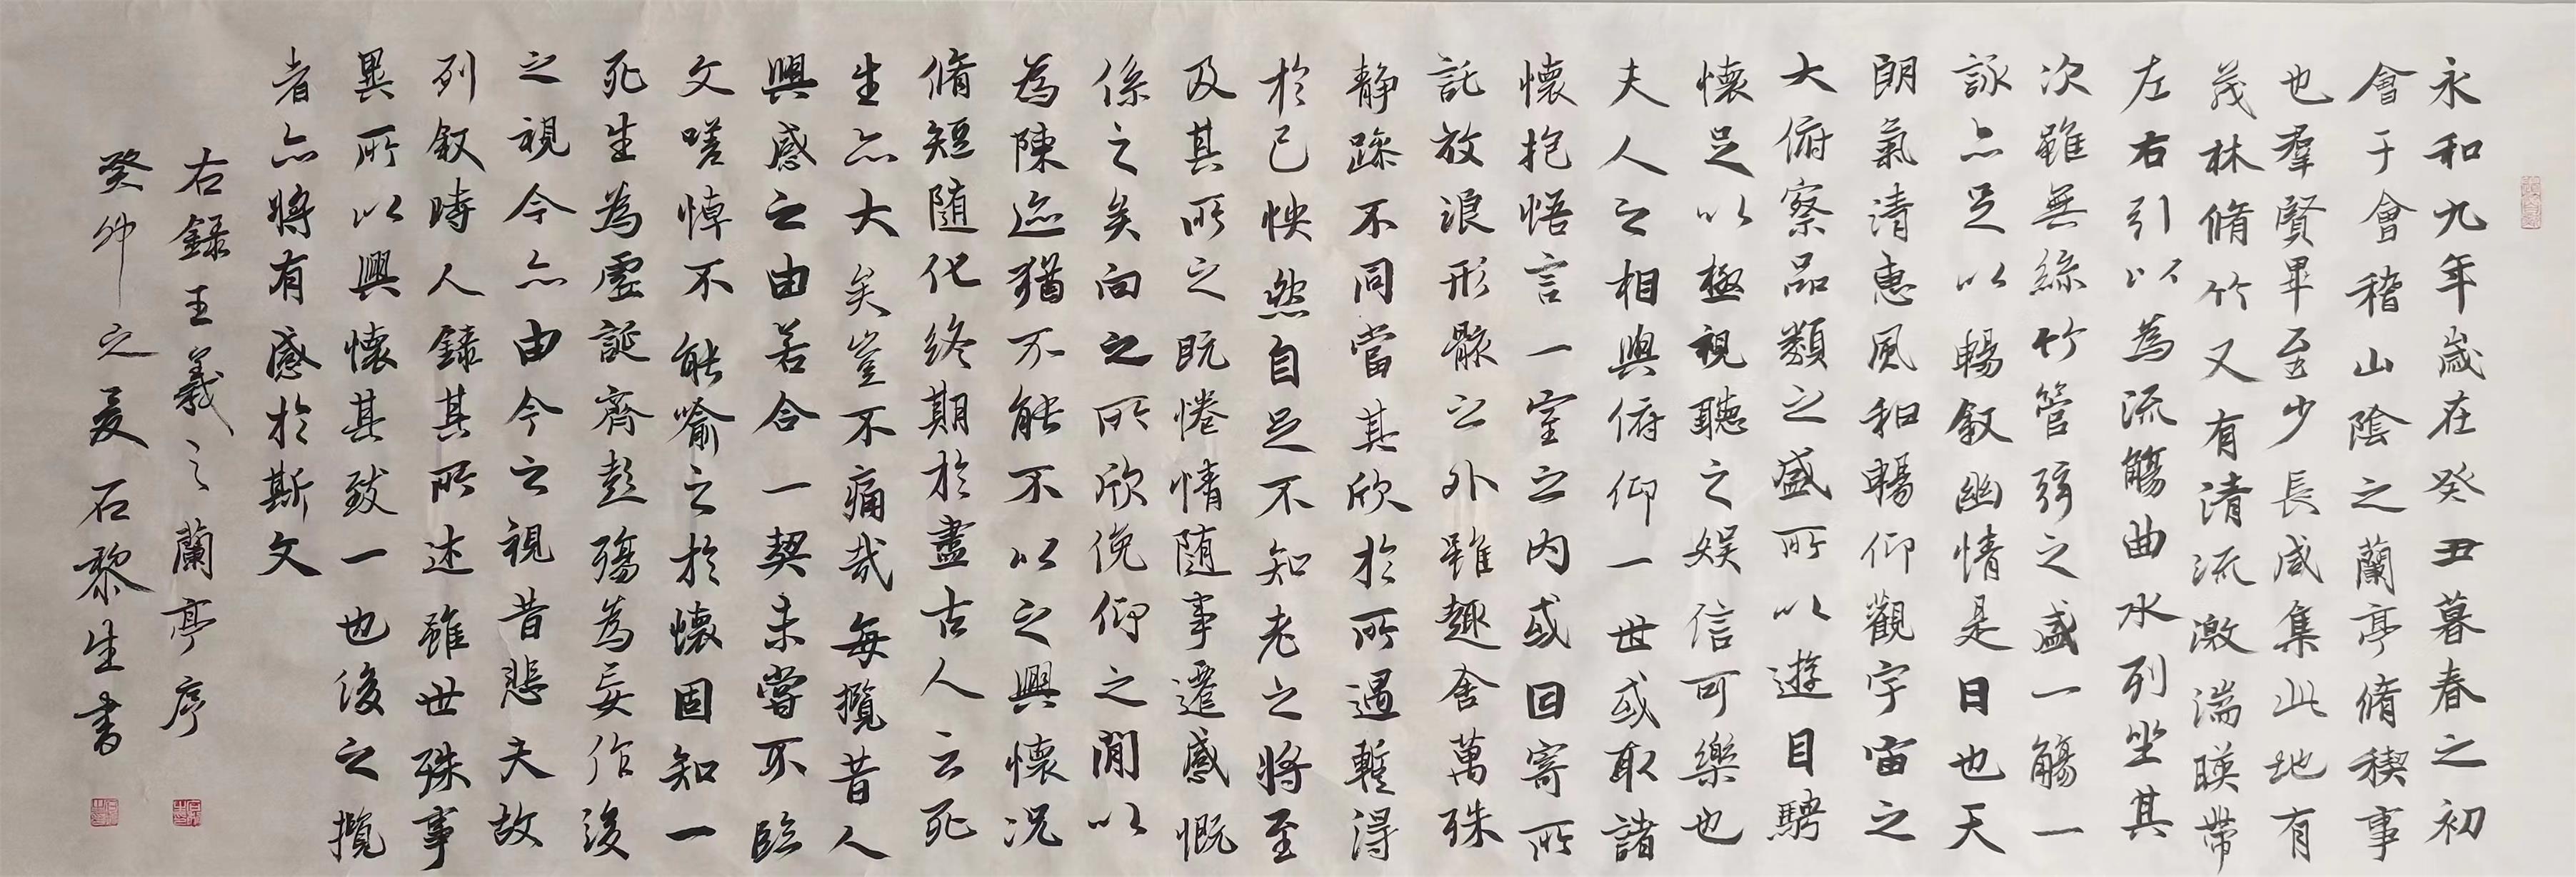 永和九年歲在癸丑暮春之初
會于會稽山陰之蘭亭脩稧事
也羣賢畢至少長咸集此地有
茂林脩竹又有清流激湍暎帶
左右引以為流觴曲水列坐其
次雖無絲竹管弦之盛一觴一
詠亦足以暢敘幽情是日也天
朗氣清惠風和暢仰觀宇宙之
大俯察品類之盛所以遊目騁
懷足以極視聽之娛信可樂也
夫人之相與俯仰一世或取諸
懷抱悟言一室之內或因寄所
託放浪形骸之外雖趣舍萬殊
靜躁不同當其欣於所遇暫得
於己怏然自足不知老之將至
及其所之既惓情隨事遷感慨
係之矣向之所欣俛仰之閒以
為陳迹猶不能不以之興懷況
脩短隨化終期於盡古人云死
生亦大矣豈不痛哉每攬昔人
興感之由若合一契未嘗不臨
文嗟悼不能喻之於懷固知一
死生為虛誕齊彭殤為妄作後
之視今亦由今之視昔悲夫故
列敘時人錄其所述雖世殊事
異所以興懷其致一也後之攬
者亦將有感於斯文
右錄王羲之蘭亭序
癸卯之夏石黎生書